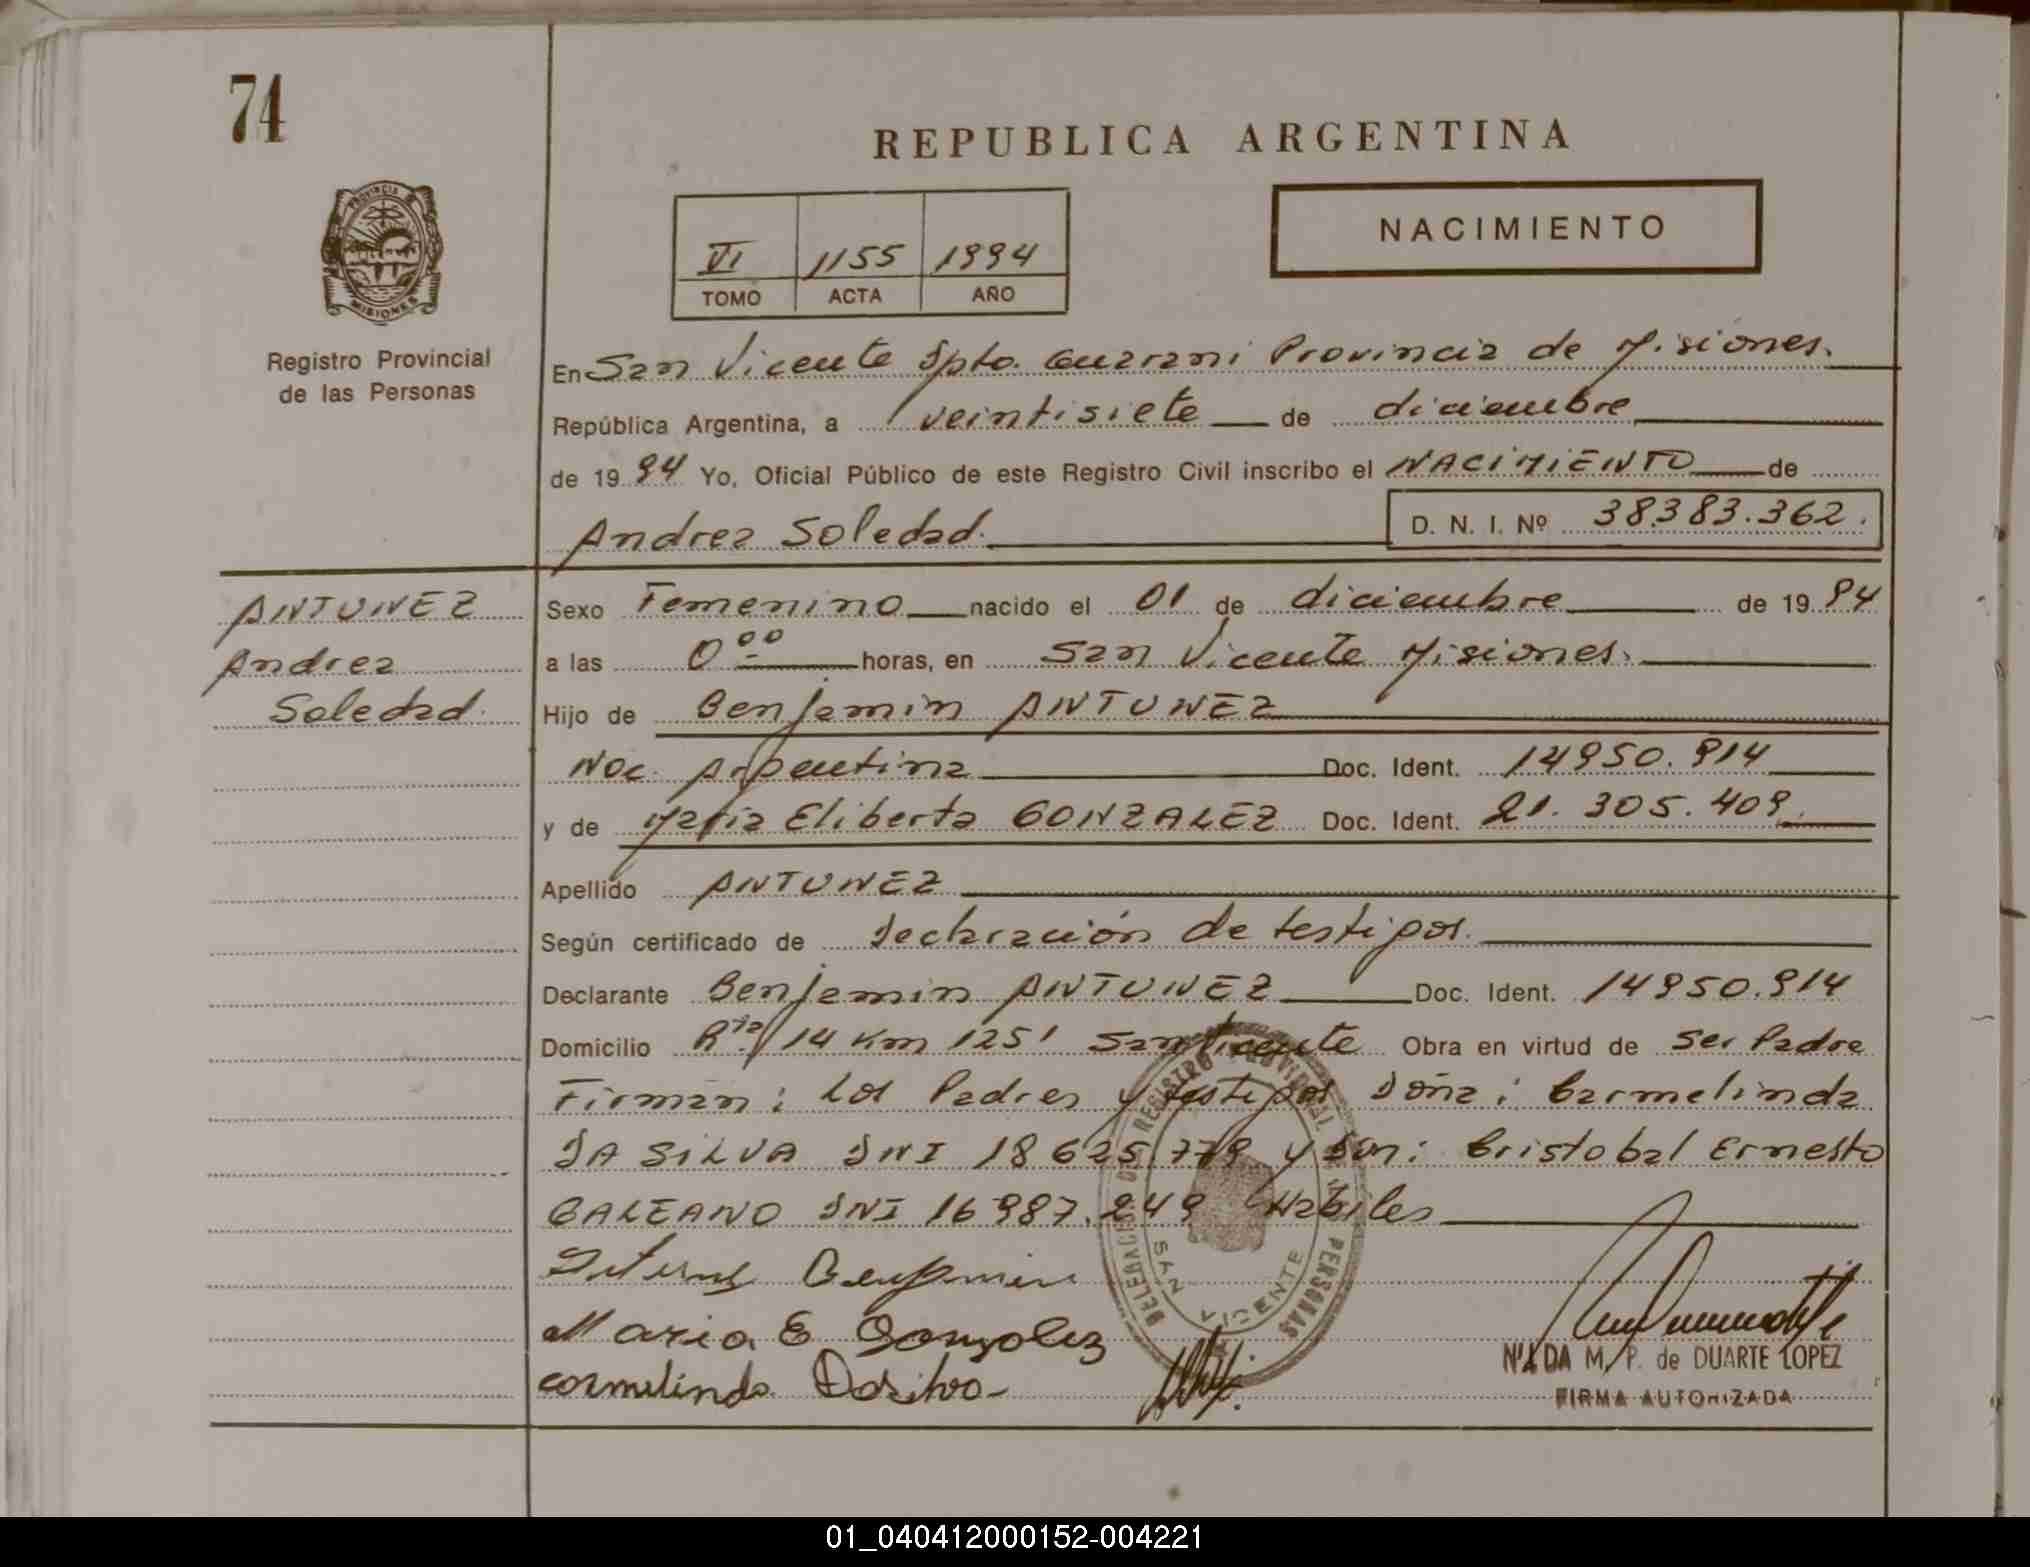 74
REPUBLICA ARGENTINA
PROVINCIA
MISIONES
Registro Provincial
de las Personas
VI 1155 1994
TOMO ACTA AÑO
NACIMIENTO
En San Vicente Dpto. Guarani Provincia de Misiones.
República Argentina, a veintisiete de diciembre
de 1994 Yo, Oficial Público de este Registro Civil inscribo el NACIMIENTO de
Andrea Soledad. D. N. I. Nº 38.383.362.
ANTUNEZ
Andrea
Soledad.
Sexo Femenino nacido el 01 de diciembre de 1994
a las 0 00 horas, en San Vicente Misiones.
Hijo de Benjamin ANTUNEZ
Nac. Argentina Doc. Ident. 14950.914
y de Maria Eliberta GONZALEZ Doc. Ident. 21.305.409.
Apellido ANTUNEZ
Según certificado de Declaración de testigos.
Declarante Benjamin ANTUNEZ Doc. Ident. 14950.914
Domicilio Rta 14 Km 1251 San Vicente Obra en virtud de Ser Padre
Firman: Los Padres y testigos Doña: Carmelinda
DA SILVA DNI 18625.779 y Don: Cristobal Ernesto
GALEANO DNI 16987.249 Habiles
Benjamin
Maria E Gonzalez
carmelinda Dasilva
DELEGACION REGISTRO PROVINCIAL DE PERSONAS
SAN VICENTE
M. P. de DUARTE LOPEZ
FIRMA AUTORIZADA
01_040412000152-004221